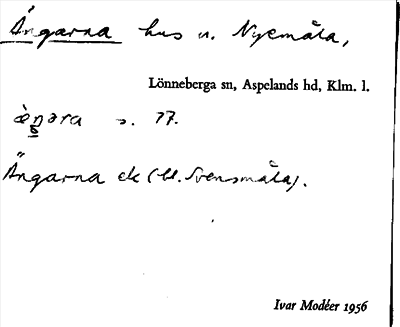 Ängarna hus u. Nyemåla,
Lönneberga sn, Aspelands hd, Klm. l.
àŋəra s. 77.
Ängarna ek (bl. Svensmåla).
Ivar Modéer 1956